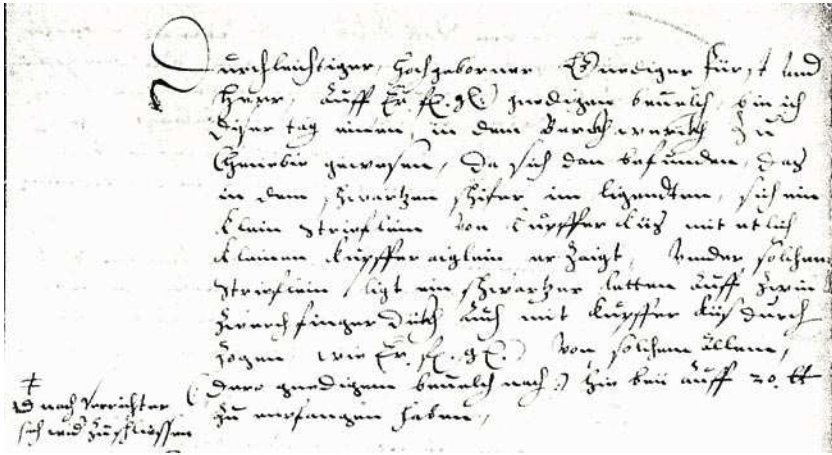 Durchleichtiger, Hochgeborner Gnediger Fürst vnd
Herr, Auff Er. fl. gl. gnedigen beuelch, bin ich
diser tag einen, in dem Berckhwerckh zu
gewesen, da sich dan befunden, das
in dem schwartzen schifer im ligendten, sich ein
klein strieflein von Cupffer küs mit etlich
kleinen kupffer aiglein erzaigt, vnder solchem
strieflein ligt ein schwartzer letten auff zwen
zwerch finger dückh auch mit kupffer küs durch
zogen, wie Er. fl. gl. von solchem allem,
(dero gnedigem beuelch nach) hie beii auff 20. tt
zu empfangen haben,
nach verrichter
sich wid zuschliessen